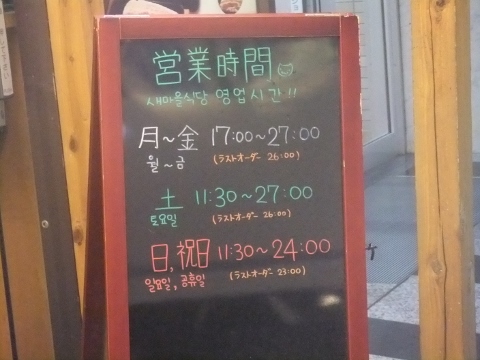 営業時間
새마을식당 영업시간!!
月～金 17:00～27:00
월～금 (ラストオーダー 26:00)
土 11:30～27:00
토요일 (ラストオーダー 26:00)
日,祝日 11:30～24:00
일요일,공휴일 (ラストオーダー 23:00)